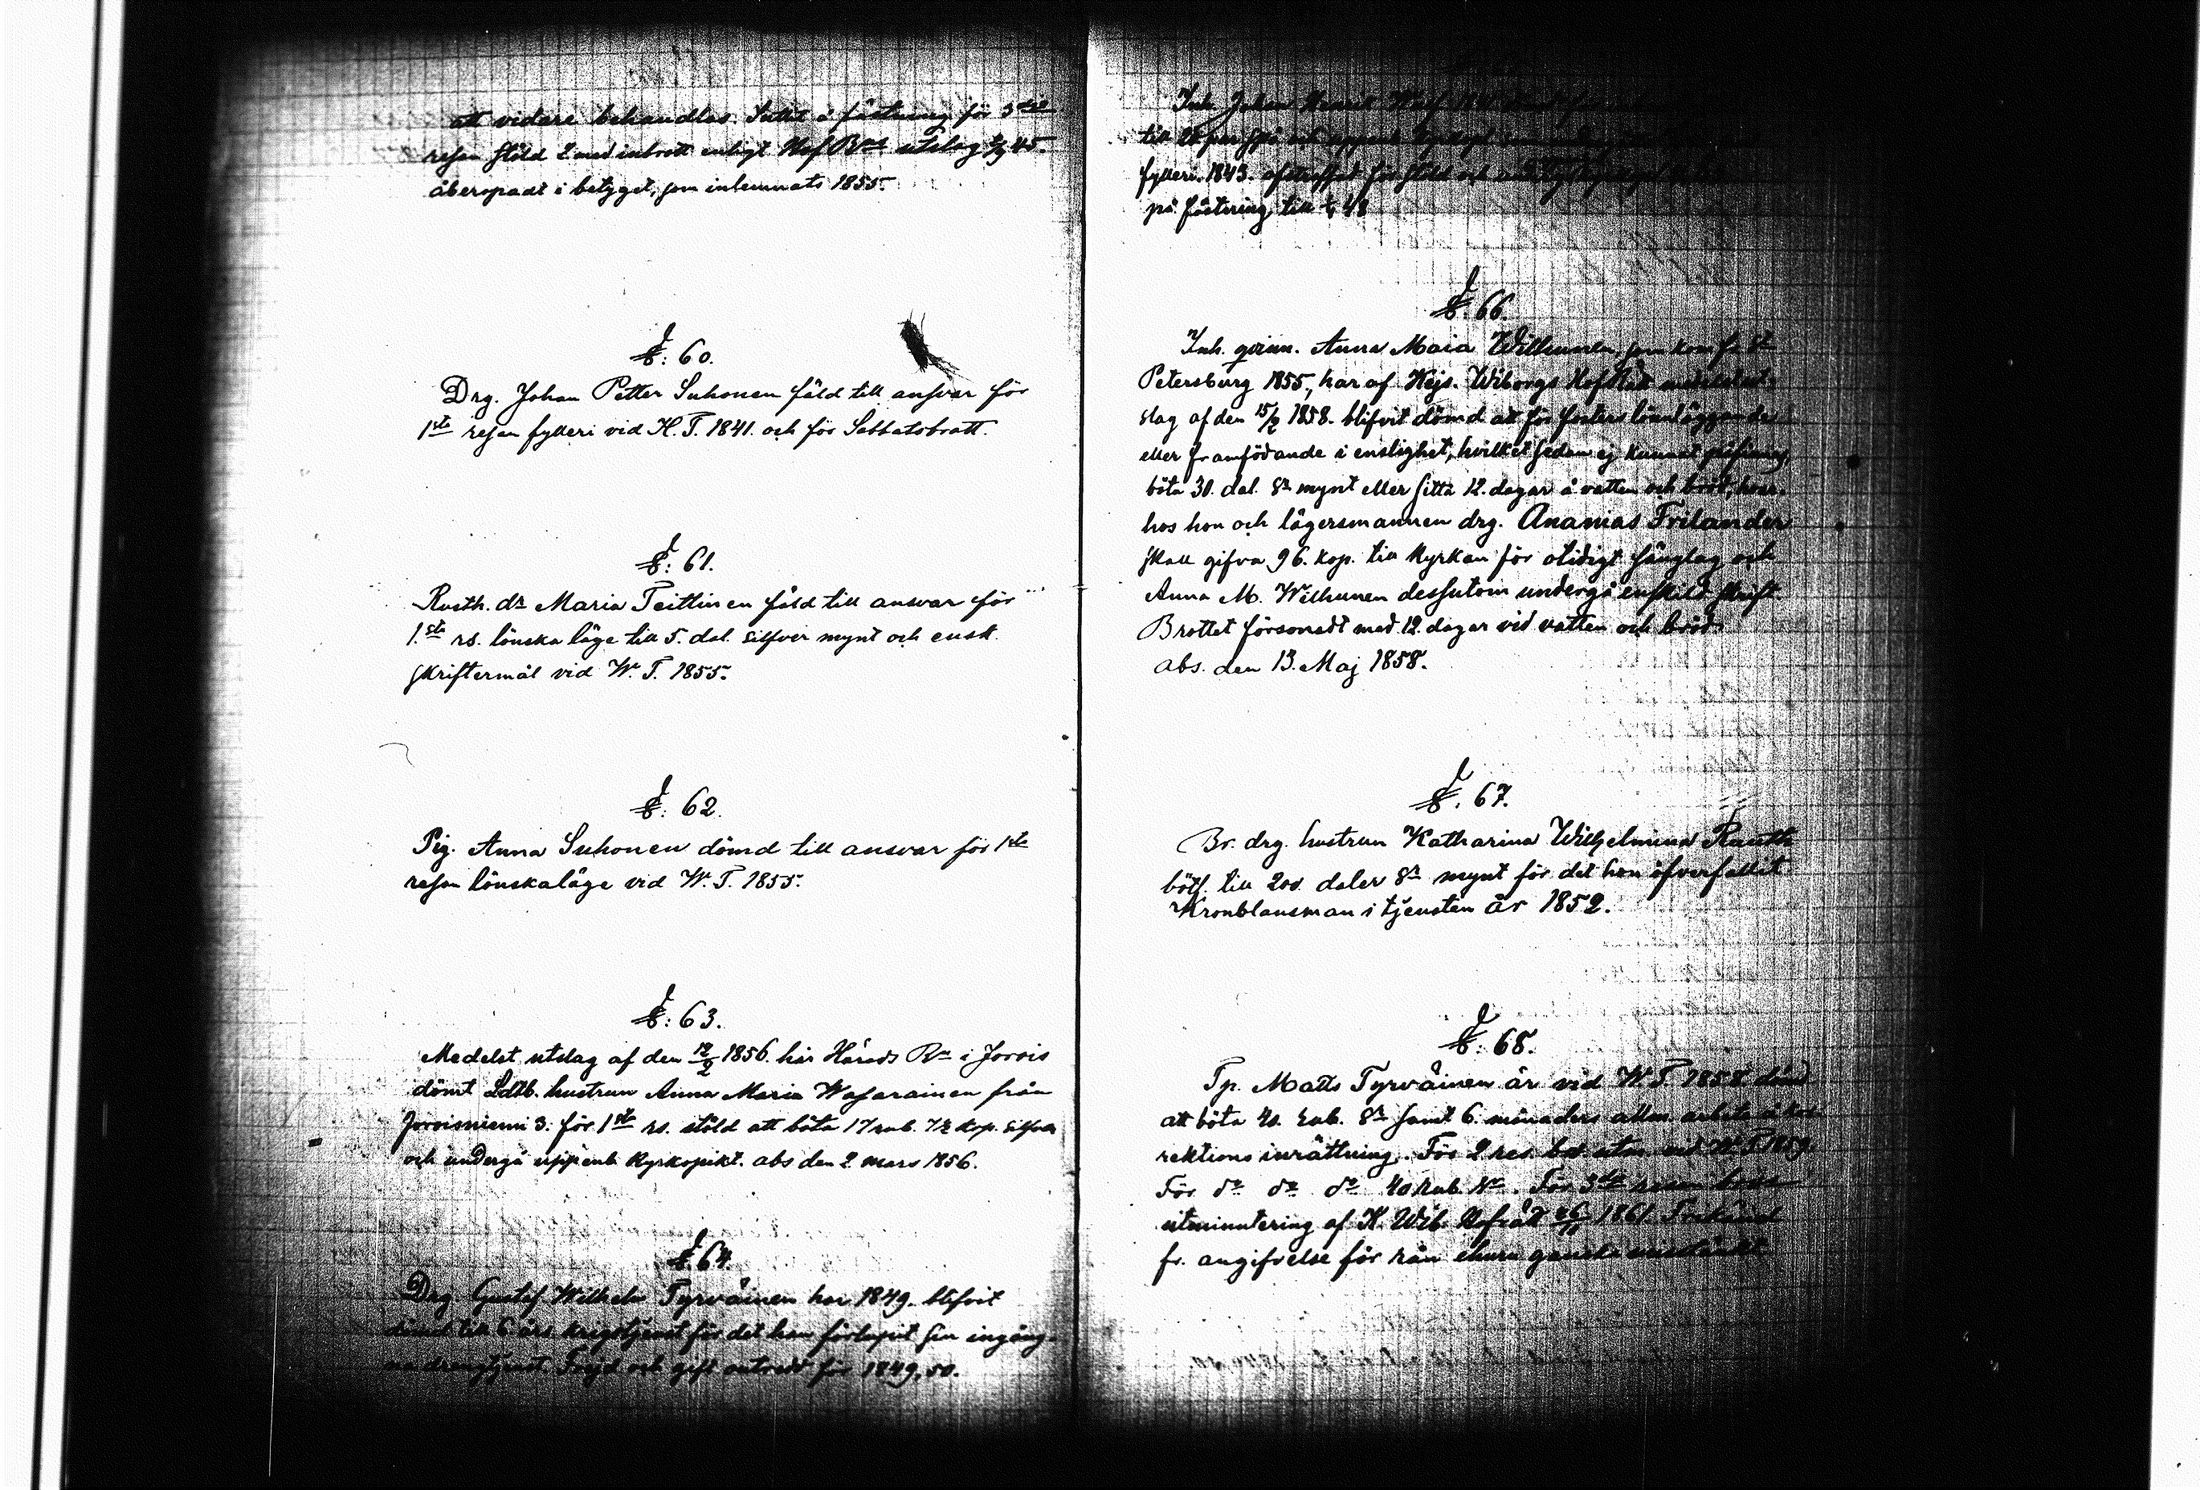 att vidare behandlas. Suttit å fästning för 3dje
resan stöld 2 med inbrott enligt Hof Rtts utslag 45.
åberopadt i betyget, som inlemnats 1855.
§: 60.
Drg. Johan Petter Suhonen fäld till ansvar för
1sta resan fylleri vid H. T. 1841. och för Sabbatsbrott.
§: 61.
Rusth. dr Maria Teittinen fäld till ansvar för
1.sta rs. lönskaläge till 5. dal. Silfver mynt och ensk.
skriftermål vid W. T. 1855.
§: 62.
Pig. Anna Suhonen dömd till ansvar för 1sta
resan lönskaläge vid W. T. 1855.
§: 63.
Medelst utslag af den 19/2 1856. här Härads Rn i Jorois
dömt Ldtb. hustrun Anna Maria Waharainen från
Joroisniemi 3. för 1sta rs. stöld att böta 17 rub. 72 kop. Silfver
och undergå uppenb. kyrkoplikt. abs den 2 mars 1856.
§. 64.
Drg Gustaf Wilhelm Tyrväinen har 1849. blifvit
dömd till 6 års krigstjenst för det han förlupit sin ingång-
na drengtjenst. Frejd och gift outredt för 1849, 50.
Inh. Johan
till
fylleri 1843. afstraffad för stöld och
på fästning till 48
§. 66.
Inh. qvinn. Anna Maia Wilhunen, som kom fr. St
Petersburg 1855, har af Kejs. Wiborgs HofRätt medelst ut-
slag af den 15/2 1858. blifvit dömd att för fosters lönnläggande
eller framfödande i enslighet, hvilket sedan ej kunnat påfinnas,
böta 30. dal. Sr mynt eller sitta 12. dagar å vatten och bröd, hvar-
hos hon och lägersmannen drg. Ananias Frilander
skall gifva 96. kop. till kyrkan för otidigt sänglag och
Anna M. Wilhunen dessutom undergå enskild skrift.
Brottet försonadt med 12. dagar vid vatten och bröd.
abs. den 13. Maj 1858.
§. 67.
Br. drg. hustrun Katharina Wilhelmina Rauth
böth. till 200. daler Sr mynt för det hon öfverfallit
Kronolänsman i tjensten år 1852.
§: 68.
Tp. Matts Tyrväinen är vid W T 1858. dömd
att böta 40. Rub. Sr samt 6. månaders allm. arbete å kor-
rektionsinrättning. För 2 res. vid W T 1859.
För do do do 40 Rub. Sr. För 3dje resan
utminutering af K. Wib. Hofrätt 26/11 1861.
fr. angifvelse för rån ehuru ganska